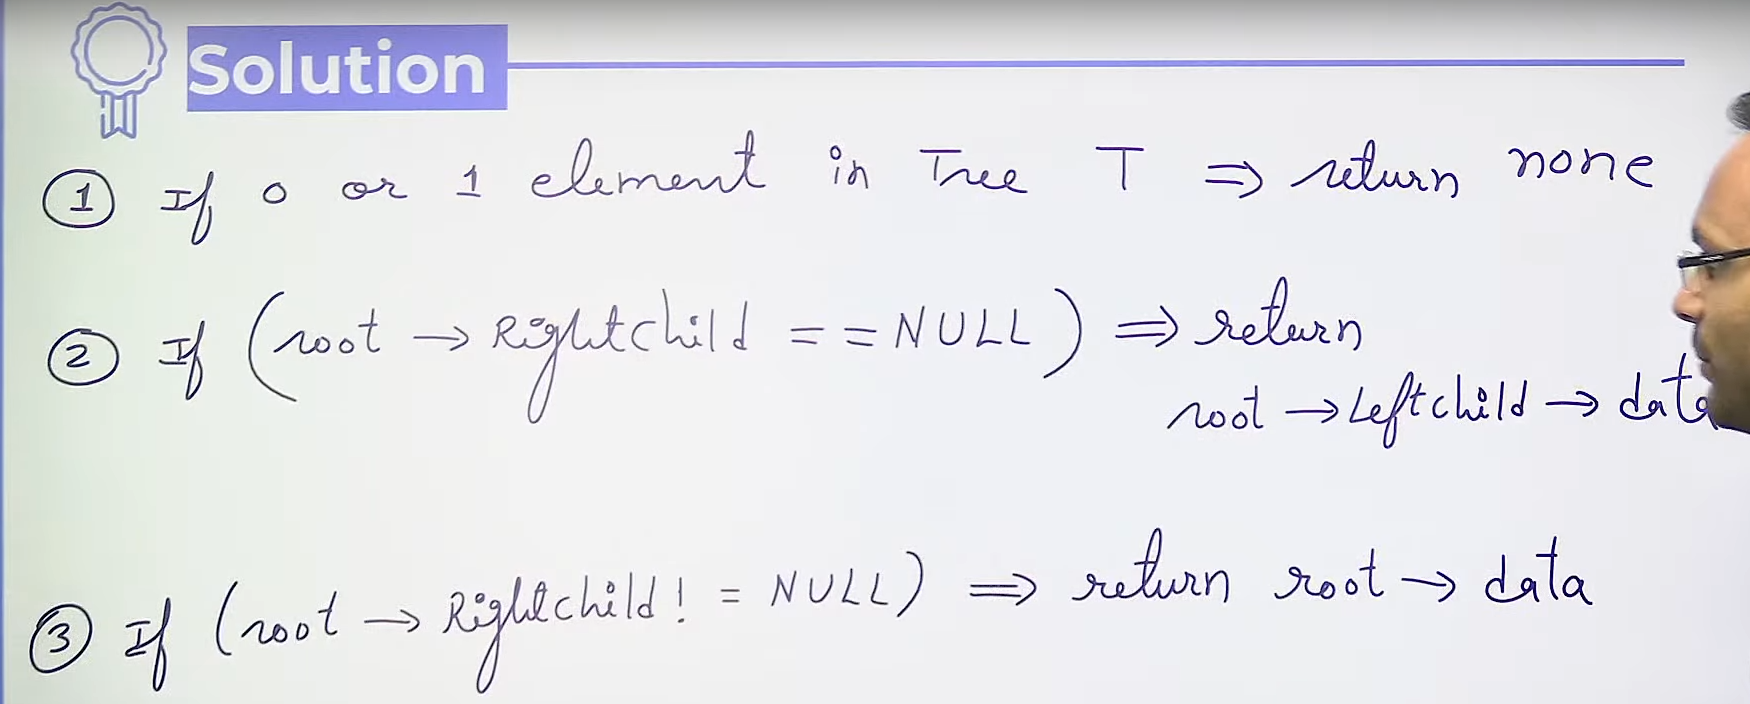 Solution
① If 0 or 1 element in Tree T ⇒ return none
② If (root → Rightchild == NULL) ⇒ return
root → Leftchild → data
③ If (root → Rightchild != NULL) ⇒ return root → data